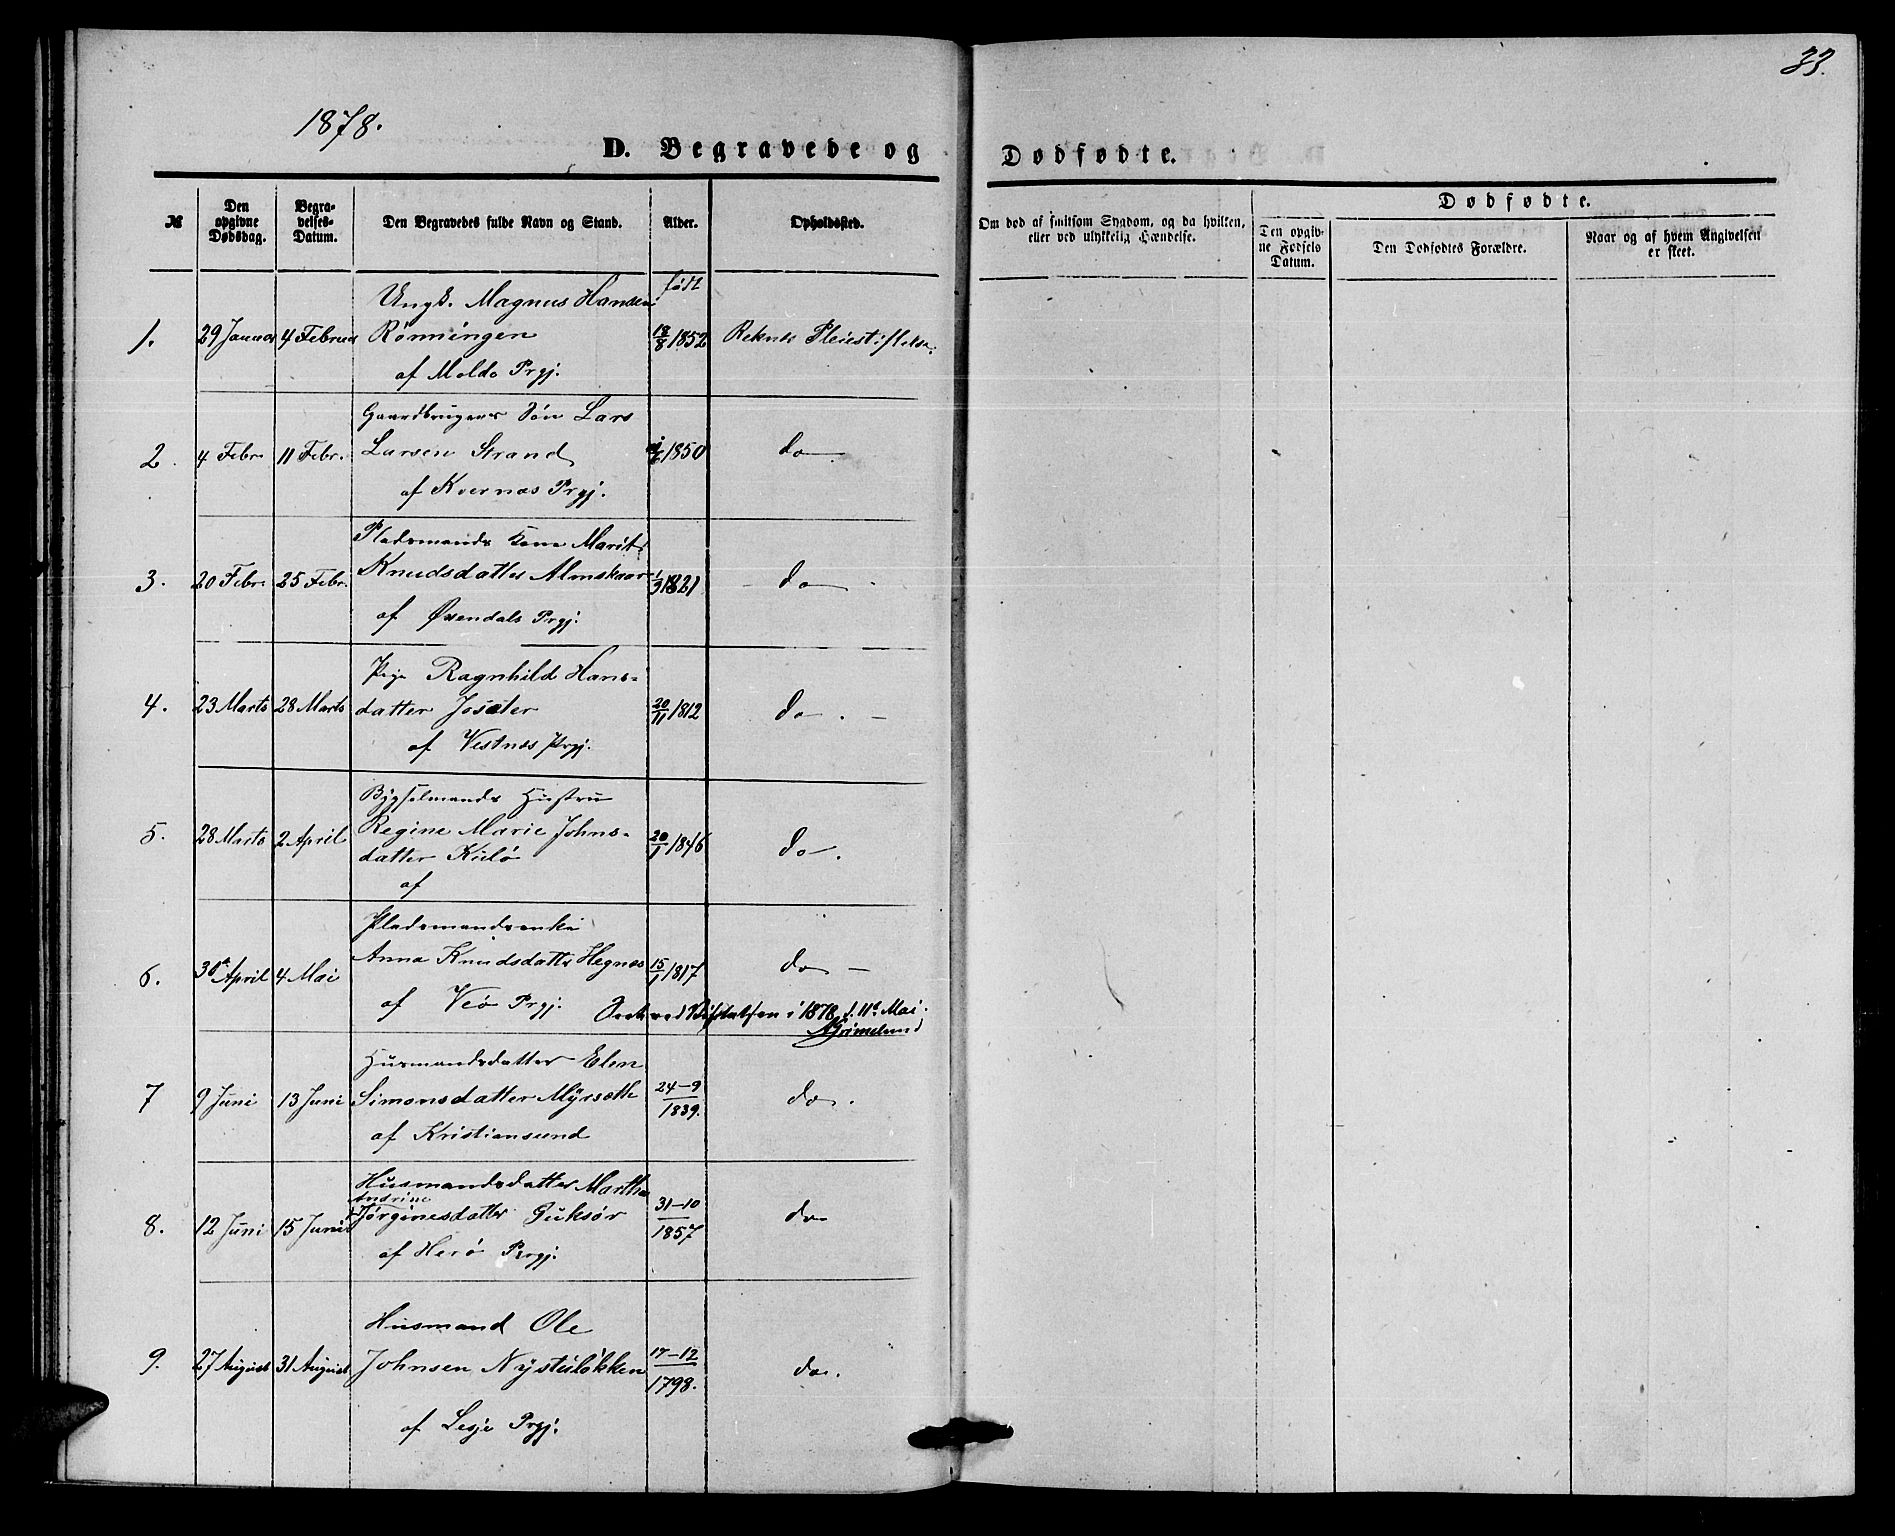 33.
1878.
D. Begravede og Dødfødte.
№
Den opgivne Dødsdag.
Begravelses-Datum.
Den Begravedes fulde Navn og Stand.
Alder.
Opholdssted.
Om død af smitsom Sygdom, og da hvilken, eller ved ulykkelig Hændelse.
Dødfødte.
Den opgivne Fødsels Datum.
Den Dødfødtes Forældre.
Naar og af hvem Angivelsen er skeet.
født
Ungk. Magnus Hansen
1. 29 Januar 4 Februar Rønningen 18/8 1852 Reknes Pleiestiftelse.
af Molde Prgj.
Gaardbrugers Søn Lars
2. 4 Febr. 11 Febr. Larsen Strand 1850 do
af Kvernæs Prgj.
Pladsmands Kone Marit
3. 20 Febr. 25 Febr. Knudsdatter 1/9 1821 do
af Øxendals Prgj.
Pige Ragnhild Hans-
4. 23 Marts 28 Marts datter 20/11 1812 do. –
af Vestnæs Prgj.
Bygselmands Hustru
5. 28 Marts 2 April Regine Marie Johns- 20/1 1846 do.
datter Kulø
af
Pladsmandsenke
6. 30te April 4 Mai Anna Knudsdatter Hegnæs 15/1 1817 do –
af Veø Prgj.
Seet ved Visitatsen i 1878 d. 11te Mai.
AGrimelund
Husmandsdatter Elen
7 9 Juni 13 Juni Simonsdatter Myrsæth 24–9/1839. do.
af Kristiansund
Husmandsdatter Martha
Andrine
8. 12 Juni 15 Juni Jørginesdatter 31–10/1857 do
af Herø Prgj.
Husmand Ole
9. 27 August 31 August Johnsen Nystuløkken 17–12/1798. do.
af Lesje Prgj.